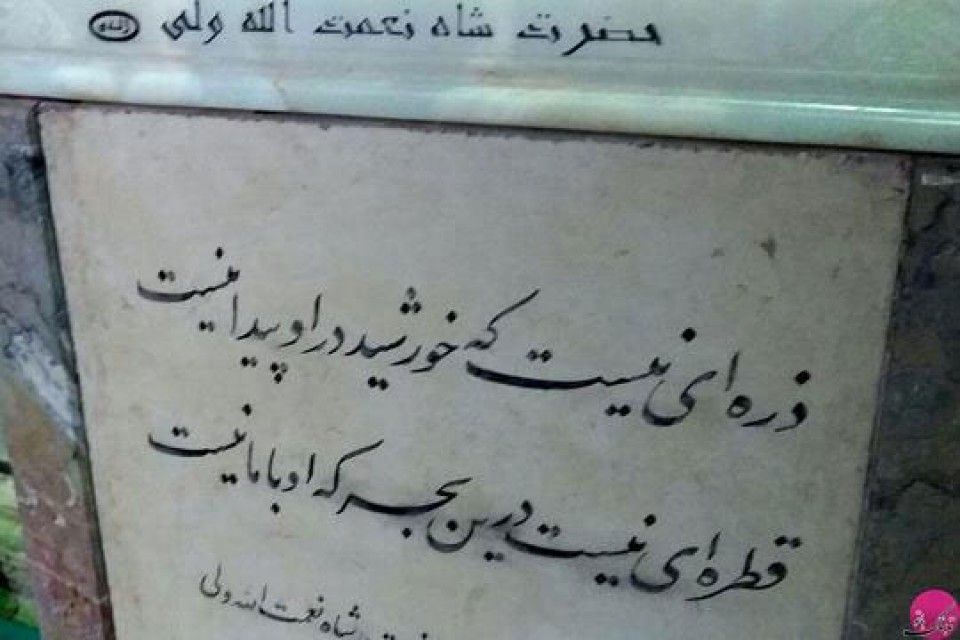 حضرت شاه نعمت الله ولی
ذره ای نیست که خورشید در او پیدا نیست
قطره ای نیست درین بحر که او با ما نیست
شاه نعمت الله ولی